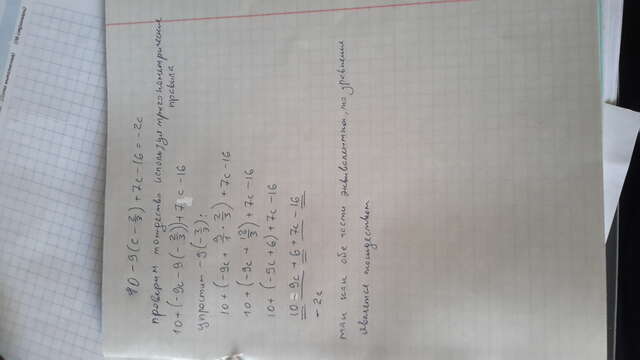 10 - 9(c - 2/3) + 7c - 16 = -2c
проверим тождество используя тригонометрические
правила
10 + (-9c - 9(-2/3)) + 7c - 16
упростим -9(-2/3):
10 + (-9c + 9/1 · 2/3) + 7c - 16
10 + (-9c + 18/3) + 7c - 16
10 + (-9c + 6) + 7c - 16
10 - 9c + 6 + 7c - 16
-2c
так как обе части эквивалентны, то уравнение
является тождеством